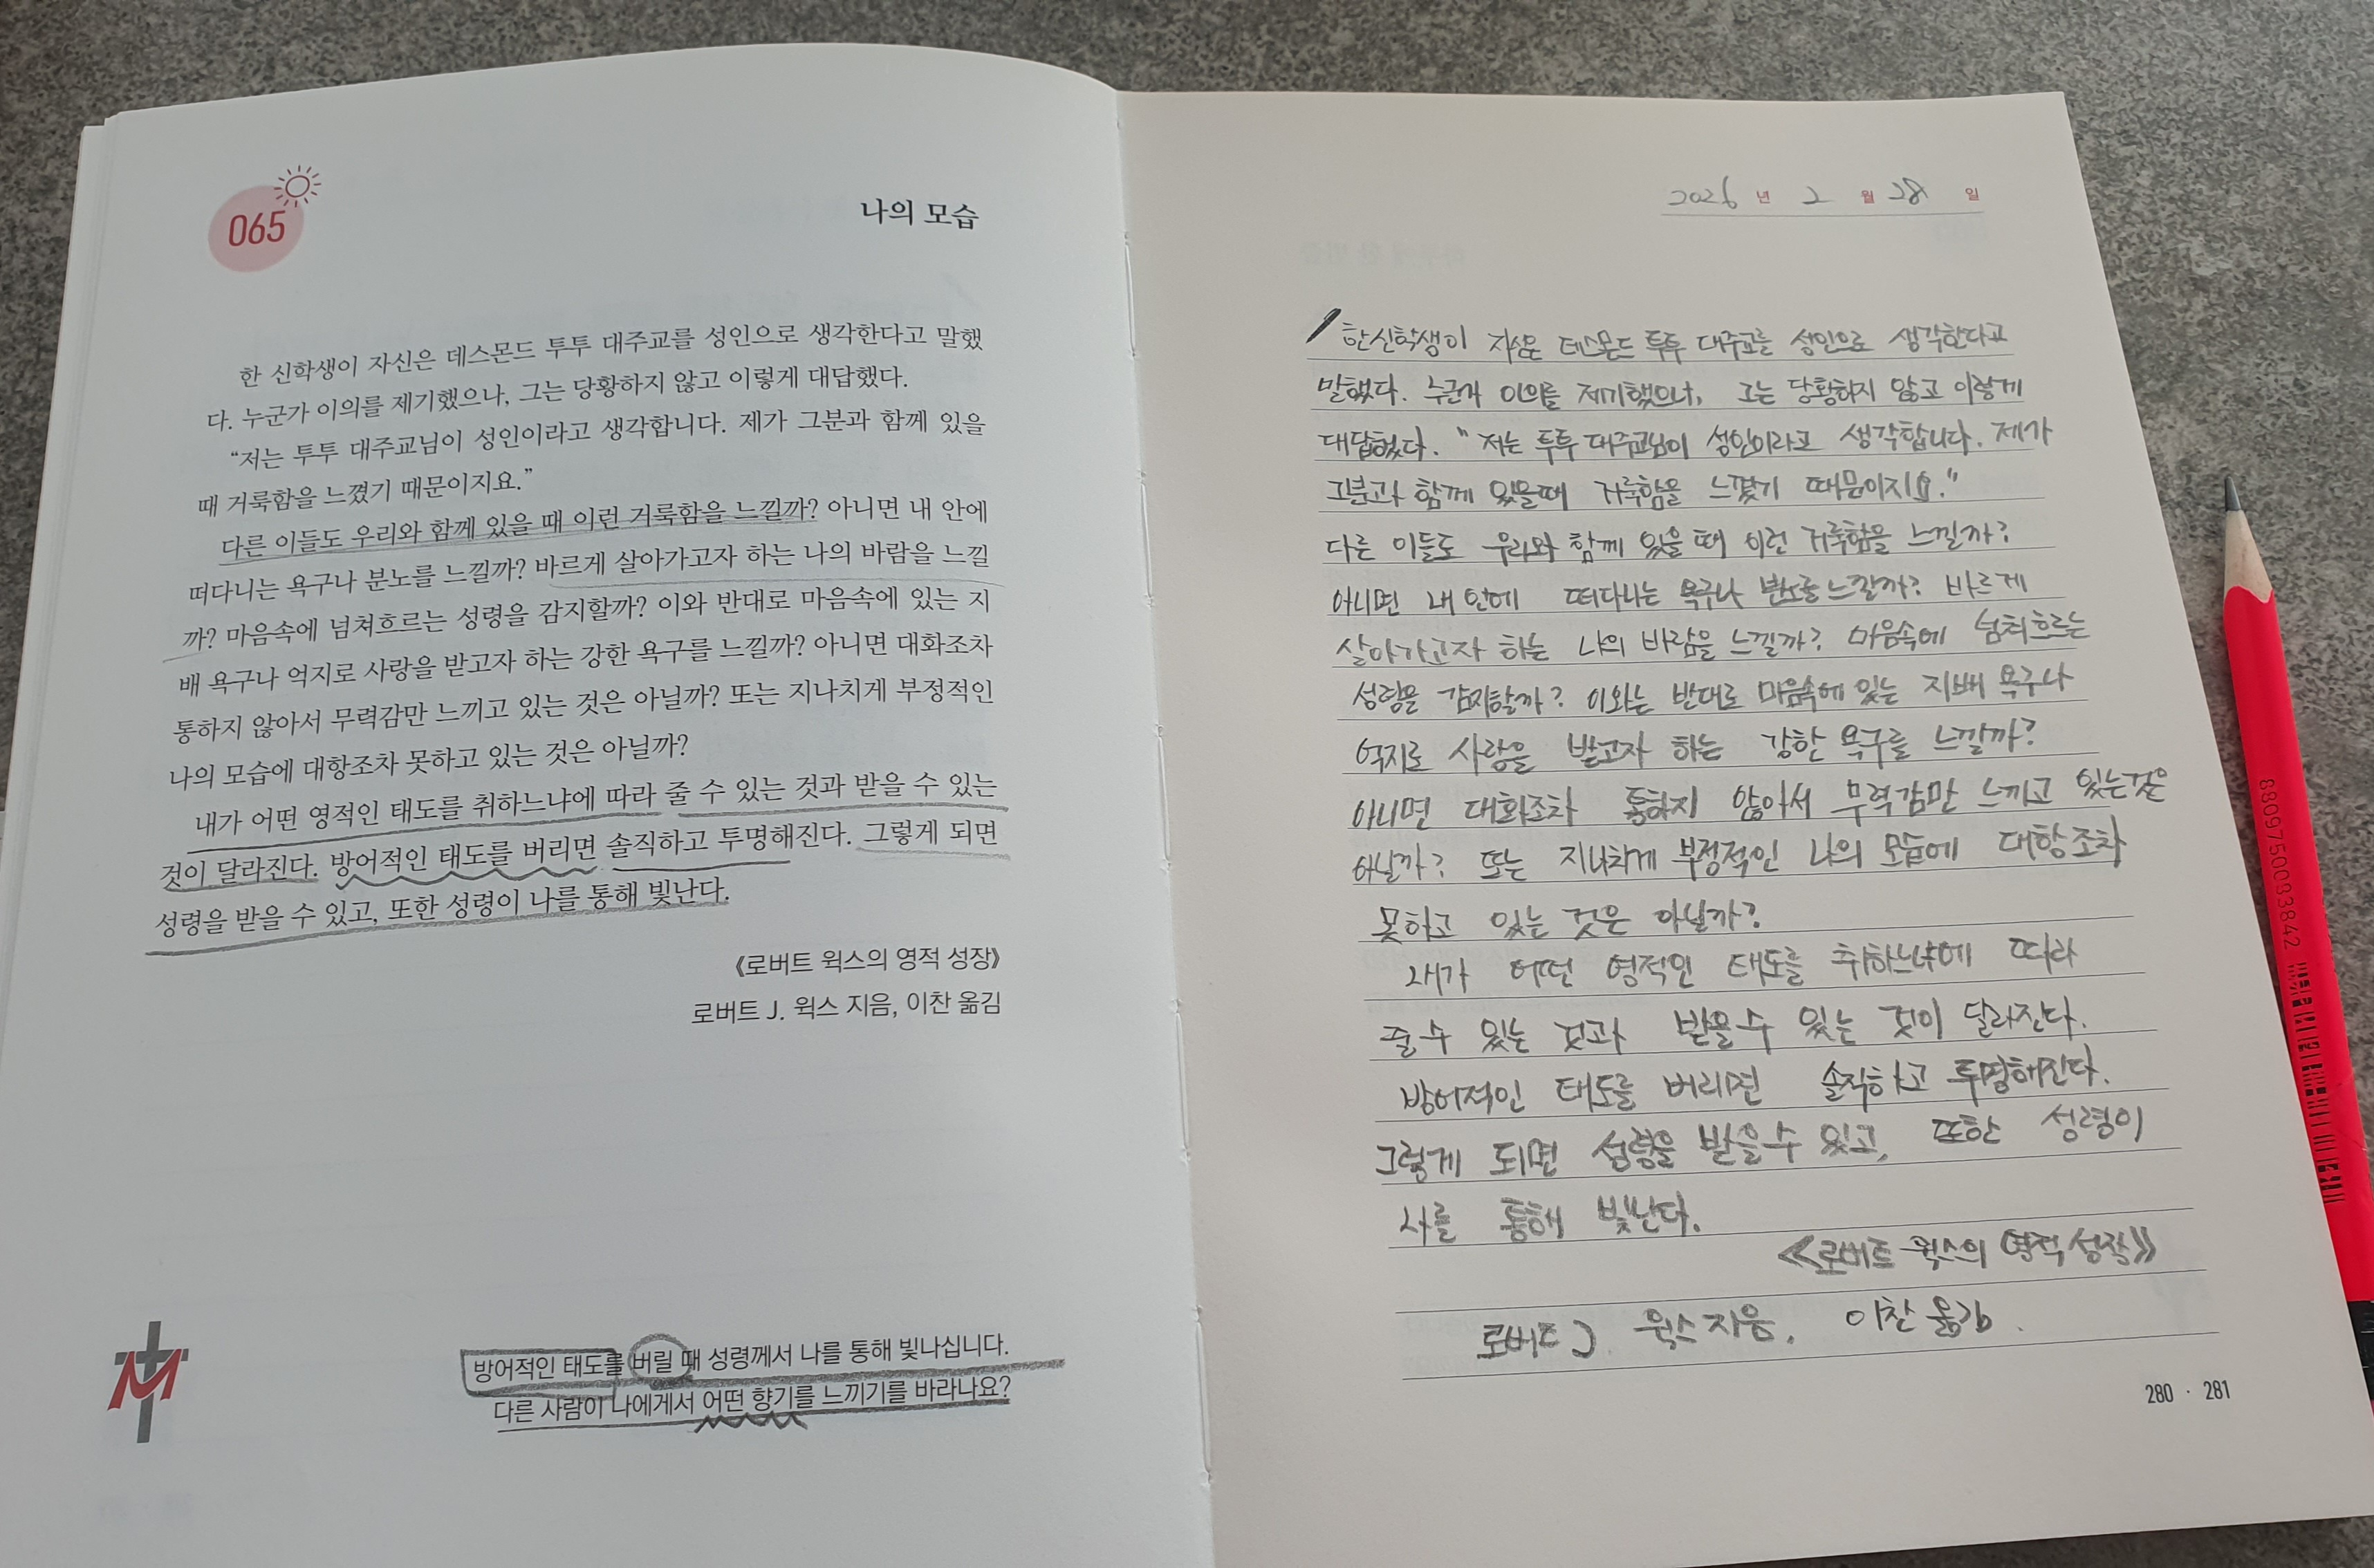 065
나의 모습
한 신학생이 자신은 데스몬드 투투 대주교를 성인으로 생각한다고 말했
다. 누군가 이의를 제기했으나, 그는 당황하지 않고 이렇게 대답했다.
“저는 투투 대주교님이 성인이라고 생각합니다. 제가 그분과 함께 있을
때 거룩함을 느꼈기 때문이지요.”
다른 이들도 우리와 함께 있을 때 이런 거룩함을 느낄까? 아니면 내 안에
떠다니는 욕구나 분노를 느낄까? 바르게 살아가고자 하는 나의 바람을 느낄
까? 마음속에 넘쳐흐르는 성령을 감지할까? 이와 반대로 마음속에 있는 지
배 욕구나 억지로 사랑을 받고자 하는 강한 욕구를 느낄까? 아니면 대화조차
통하지 않아서 무력감만 느끼고 있는 것은 아닐까? 또는 지나치게 부정적인
나의 모습에 대항조차 못하고 있는 것은 아닐까?
내가 어떤 영적인 태도를 취하느냐에 따라 줄 수 있는 것과 받을 수 있는
것이 달라진다. 방어적인 태도를 버리면 솔직하고 투명해진다. 그렇게 되면
성령을 받을 수 있고, 또한 성령이 나를 통해 빛난다.
《로버트 윅스의 영적 성장》
로버트 J. 윅스 지음, 이찬 옮김
방어적인 태도를 버릴 때 성령께서 나를 통해 빛나십니다.
다른 사람이 나에게서 어떤 향기를 느끼기를 바라나요?
2026 년 2 월 28 일
한신학생이 자신은 데스몬드 투투 대주교를 성인으로 생각한다고
말했다. 누군가 이의를 제기했으나, 그는 당황하지 않고 이렇게
대답했다. "저는 투투 대주교님이 성인이라고 생각합니다. 제가
그분과 함께 있을때 거룩함을 느꼈기 때문이지요."
다른 이들도 우리와 함께 있을 때 이런 거룩함을 느낄까?
아니면 내 안에 떠다니는 욕구나 분노를 느낄까? 바르게
살아가고자 하는 나의 바람을 느낄까? 마음속에 넘쳐흐르는
성령을 감지할까? 이와는 반대로 마음속에 있는 지배 욕구나
억지로 사랑을 받고자 하는 강한 욕구를 느낄까?
아니면 대화조차 통하지 않아서 무력감만 느끼고 있는것은
아닐까? 또는 지나치게 부정적인 나의 모습에 대항조차
못하고 있는 것은 아닐까?
내가 어떤 영적인 태도를 취하느냐에 따라
줄 수 있는 것과 받을 수 있는 것이 달라진다.
방어적인 태도를 버리면 솔직하고 투명해진다.
그렇게 되면 성령을 받을 수 있고, 또한 성령이
나를 통해 빛난다.
《로버트 윅스의 영적 성장》
로버트 J. 윅스 지음, 이찬 옮김.
280 · 281
8809750033842